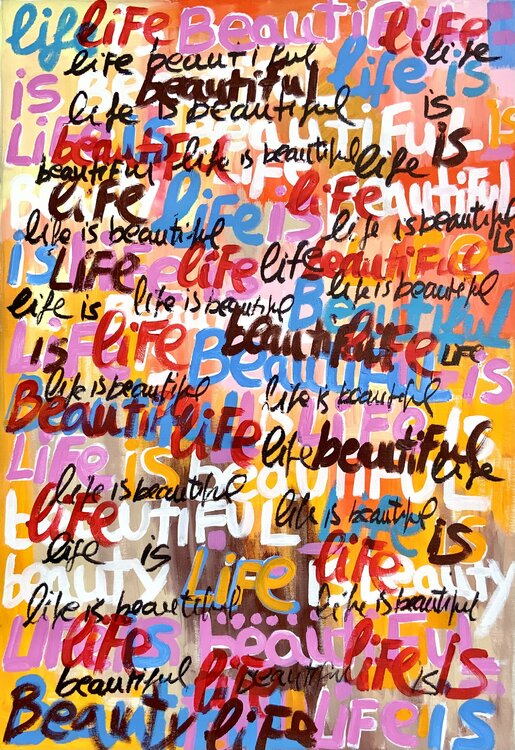 life life Beautiful
life
life beautiful
is beautiful life is
life is beautiful is
Life is BEAUTiFUL is
beautiful life is beautiful life is
beautiful
life life is life BEAUTiFUL
life is beautiful life is beautiful
is
is Life life life beautiful
life is life is beautiful life is beautiful
Beautiful
LiFe is life beautiful life LiFe
Beautiful is
life is beautiful life is beautiful
Beautiful life LiFe
life beautiful life
LiFe is beautiFUL
life is beautiful life is beautiful
life beautiFUL is
life is life
beauty LiFe beauty
life is beautiful life is beautiful
LiFe is beautiFul
life life is
beautiful life beautiful is
Beauty life LiFe is